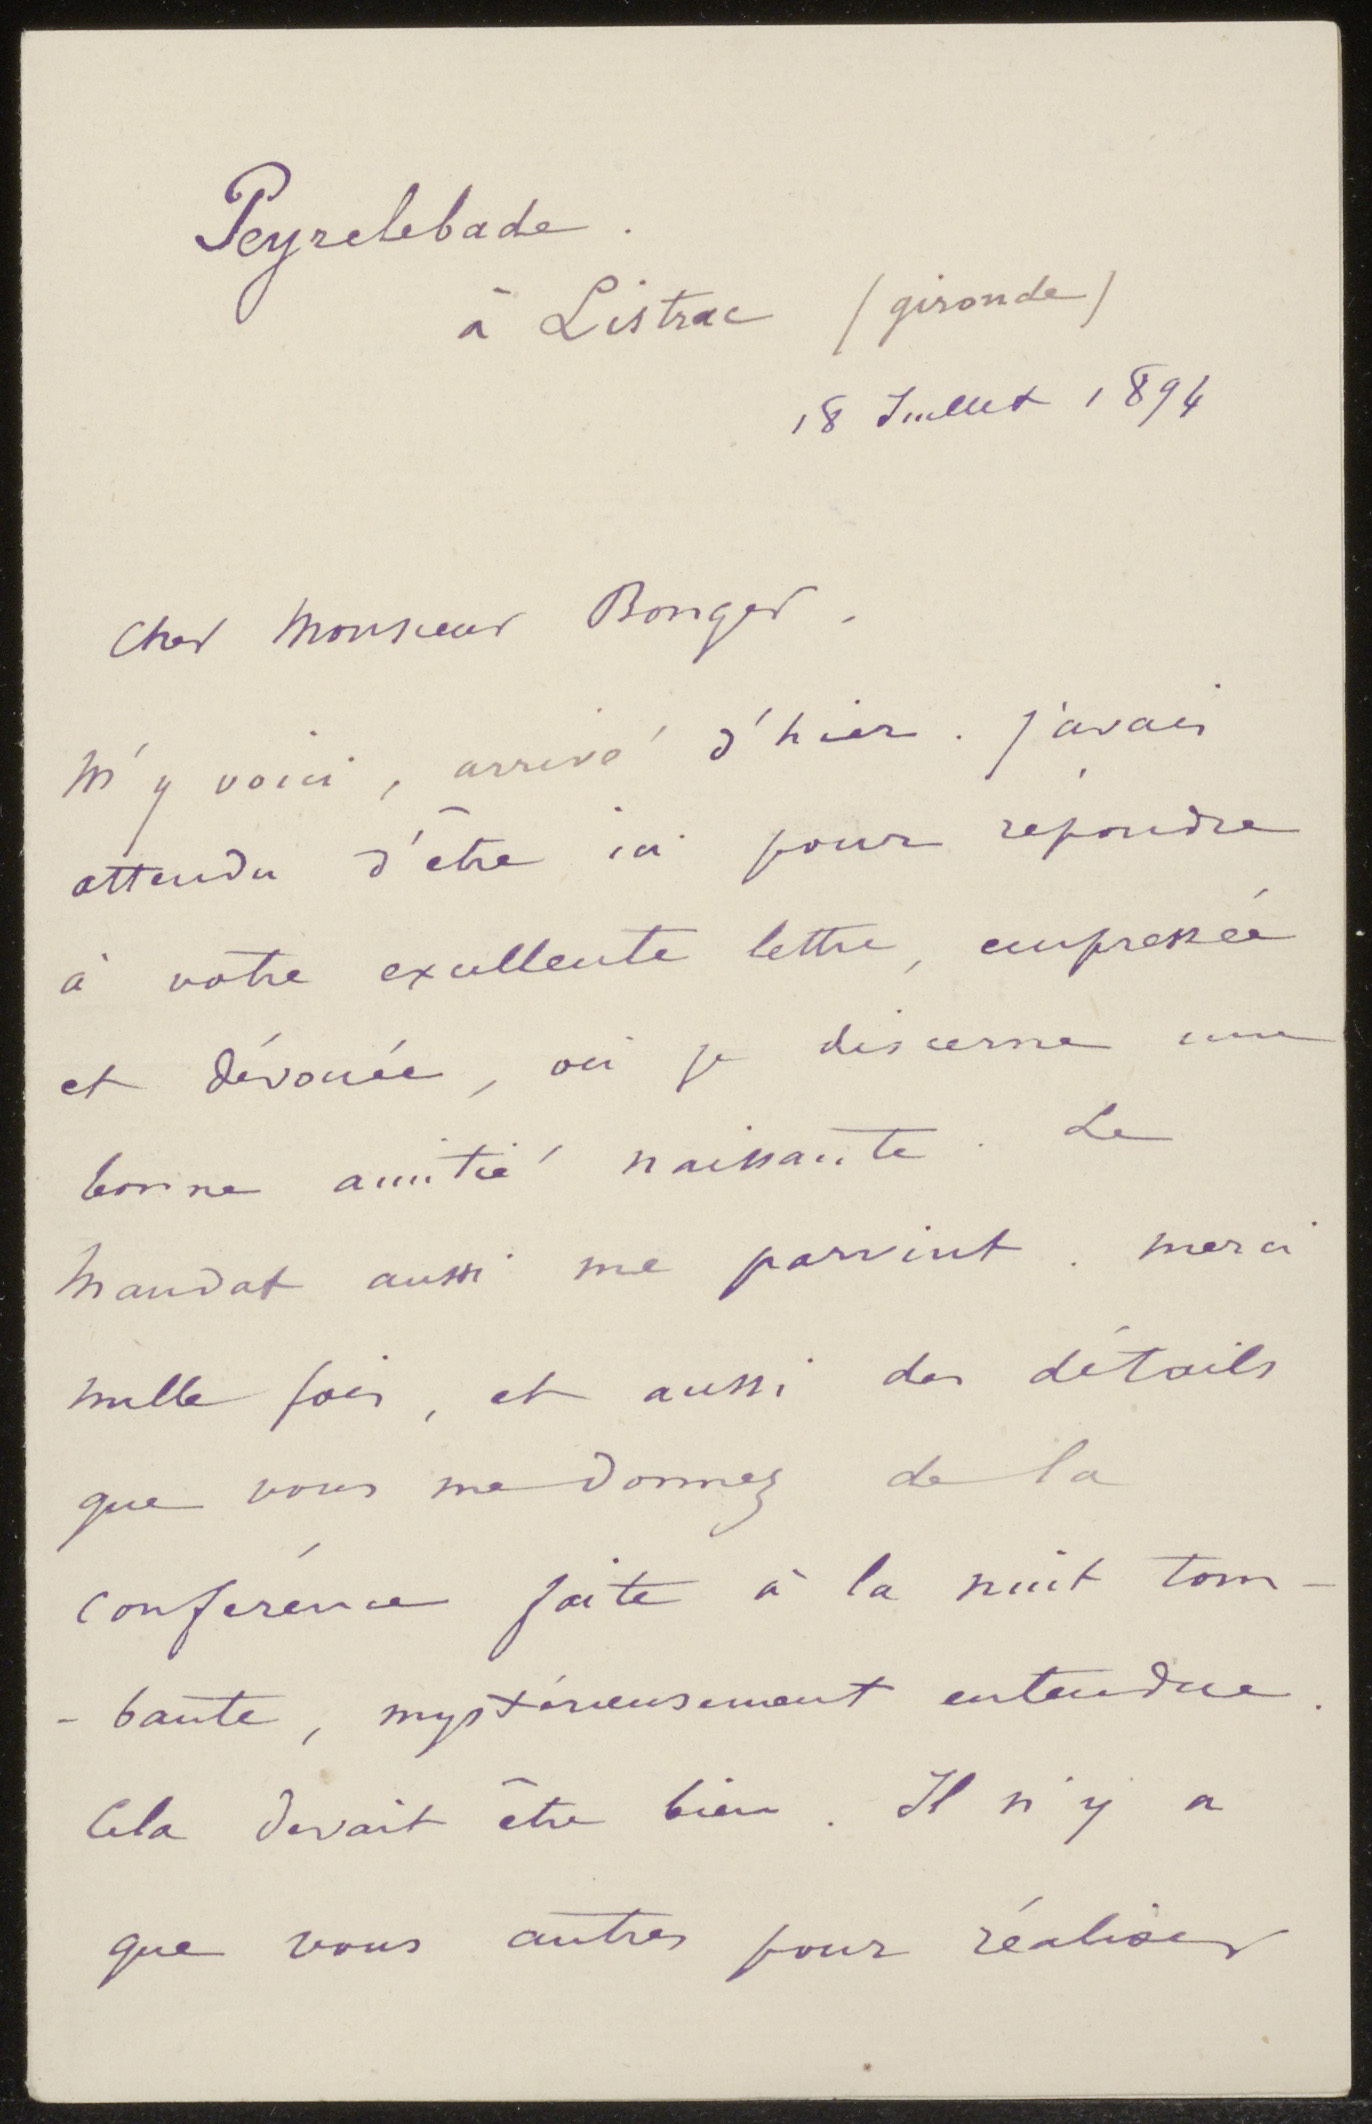 Peyrelebade.
à Listrac (gironde)
18 Juillet 1894
Cher Monsieur Bonger.
M'y voici, arrivé d'hier. j'avais
attendu d'être ici pour répondre
à votre excellente lettre, empressée
et dévouée, où je discerne une
bonne amitié naissante. Le
Mandat aussi me parvint. merci
mille fois, et aussi des détails
que vous me donnez de la
conférence faite à la nuit tom-
-bante, mystérieusement entendue.
Cela devait être bien. Il n'y a
que vous autres pour réaliser